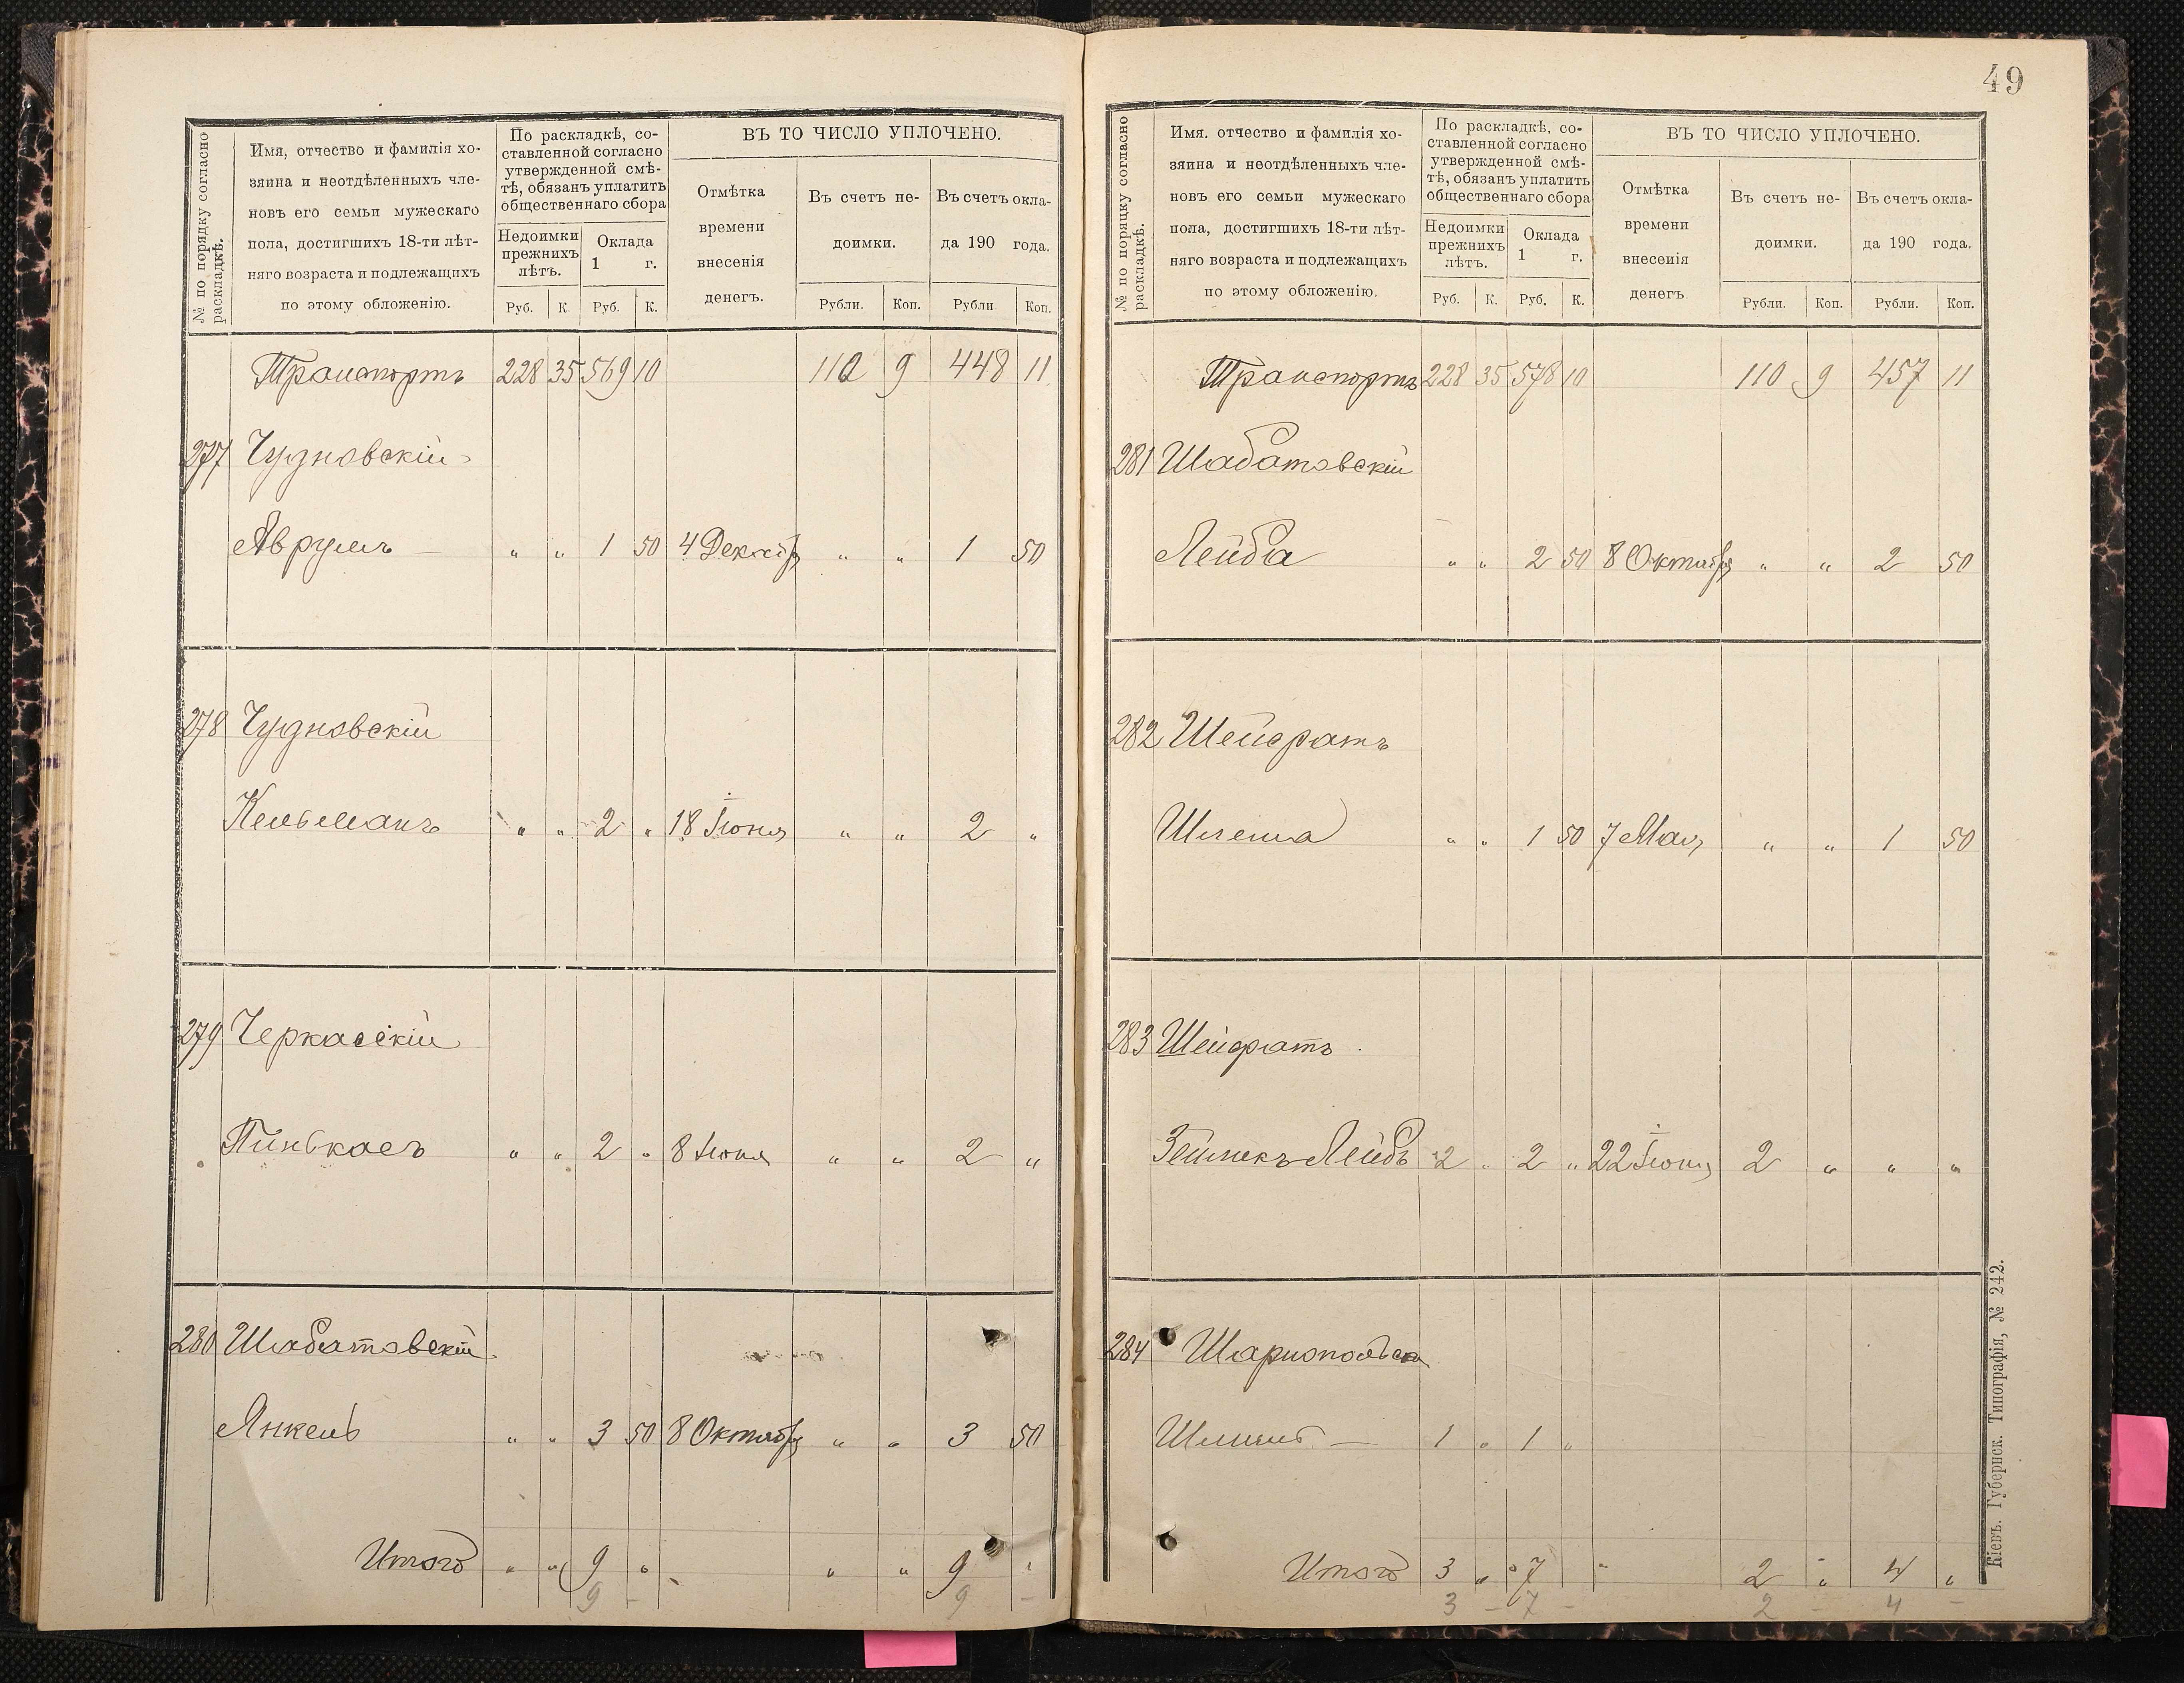 № по порядку согласно раскладкѣ.
Имя, отчество и фамилія хо-
зяина и неотдѣленныхъ чле-
новъ его семьи мужескаго
пола, достигшихъ 18-ти лѣт-
няго возраста и подлежащихъ
по этому обложенію.
По раскладкѣ, со-
ставленной согласно
утвержденной смѣ-
тѣ, обязанъ уплатить
общественнаго сбора
Недоимки прежнихъ лѣтъ.
Оклада 1 г.
Руб. К. Руб. К.
ВЪ ТО ЧИСЛО УПЛОЧЕНО.
Отмѣтка
времени
внесенія
денегъ.
Въ счетъ не-
доимки.
Въ счетъ окла-
да 190 года.
Рубли. Коп. Рубли Коп.
Транспортъ 228 35 569 10 110 9 448 11
277 Чудновскій
Аврумъ — " " 1 50 4 Декабр " " 1 50
278 Чудновскій
Кельманъ " " 2 " 18 Іюня " " 2 "
279 Черкасскій
Пинькасъ " " 2 " 8 Іюня " " 2 "
280 Шабатовскій
Янкель " " 3 50 8 Октябр " " 3 50
Итого " " 9 " " " 9 "
9 – 9 –
49
№ по порядку согласно раскладкѣ.
Имя. отчество и фамилія хо-
зяина и неотдѣленныхъ чле-
новъ его семьи мужескаго
пола, достигшихъ 18-ти лѣт-
няго возраста и подлежащихъ
по этому обложенію.
По раскладкѣ, со-
ставленной согласно
утвержденной смѣ-
тѣ, обязанъ уплатить
общественнаго сбора
Недоимки прежнихъ лѣтъ.
Оклада 1 г.
Руб. К. Руб. К.
ВЪ ТО ЧИСЛО УПЛОЧЕНО.
Отмѣтка
времени
внесенія
денегъ.
Въ счетъ не-
доимки.
Въ счетъ окла-
да 190 года.
Рубли. Коп. Рубли. Коп.
Транспортъ 228 35 578 10 110 9 457 11
281 Шабатовскій
Лейба " " 2 50 8 Октябр " " 2 50
282 Шейфатъ
Шлема " " 1 50 7 Мая " " 1 50
283 Шейфатъ
Зельмекъ Лейбъ 2 " 2 " 22 Іюня 2 " " "
284
— 1 " 1 "
Итого 3 " 7 " 2 " 4 "
3 – 7 – 2 – 4 –
Кіевъ. Губернск. Типографія, № 242.